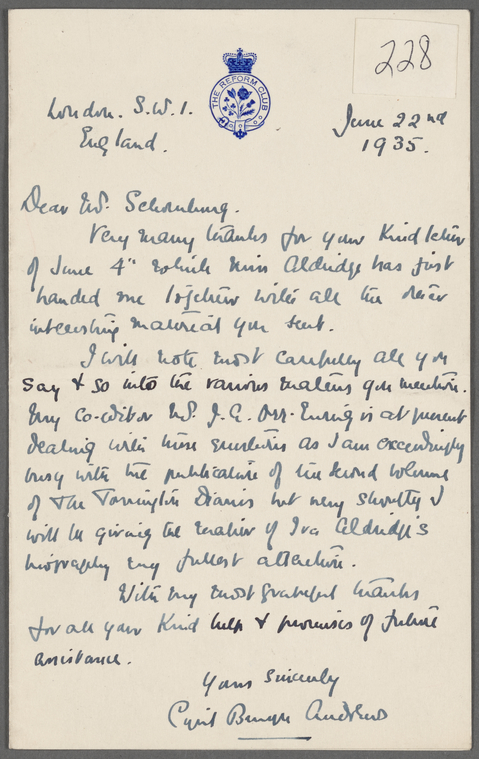 228
THE REFORM CLUB
London. S.W.1.
England.
June 22nd
1935.
Dear Mr. Schomburg.
Very many thanks for your kind letter
of June 4th which Miss Aldridge has just
handed me together with all the
interesting material you sent.
I will note most carefully all you
say & go into the various matters you mention.
My co-editor Mr. J. A. Orr-Ewing is at present
dealing with these questions as I am exceedingly
busy with the publication of the second volume
of The Torrington Diaries but very shortly I
will be giving the matter of Ira Aldridge's
biography my fullest attention.
With my most grateful thanks
for all your kind help & promises of future
assistance.
Yours Sincerely
Cyril Bruyn Andrews